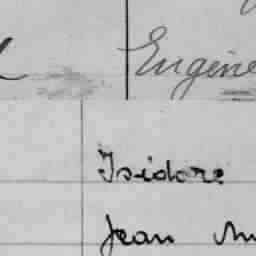 Eugène
Isidore
Jean